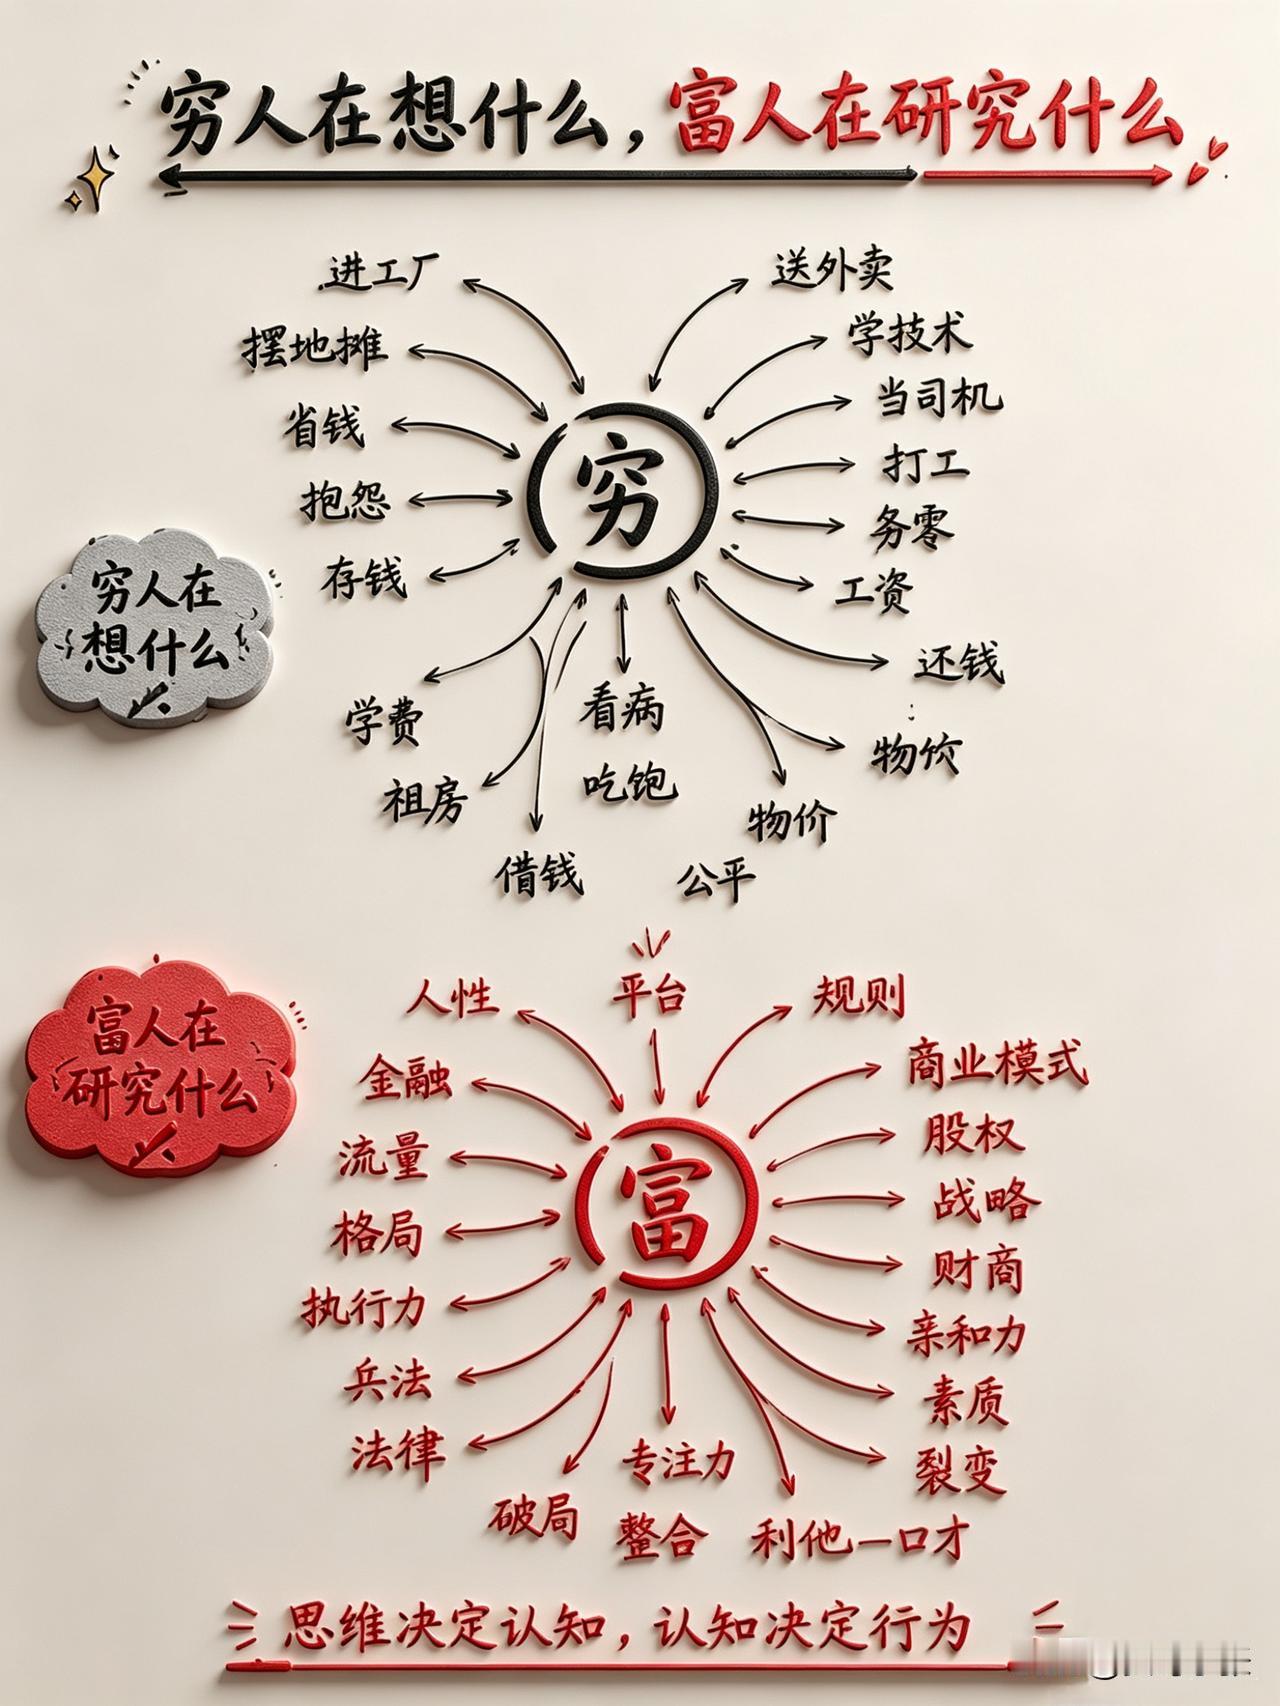 穷人在想什么，富人在研究什么
进工厂
送外卖
摆地摊
学技术
省钱
当司机
抱怨
打工
存钱
务零
工资
穷
穷人在
想什么
还钱
学费
看病
物价
租房
吃饱
物价
借钱
公平
富人在
研究什么
人性
平台
规则
金融
商业模式
流量
股权
格局
战略
执行力
财商
兵法
亲和力
法律
素质
富
专注力
裂变
破局
整合
利他一口才
思维决定认知，认知决定行为